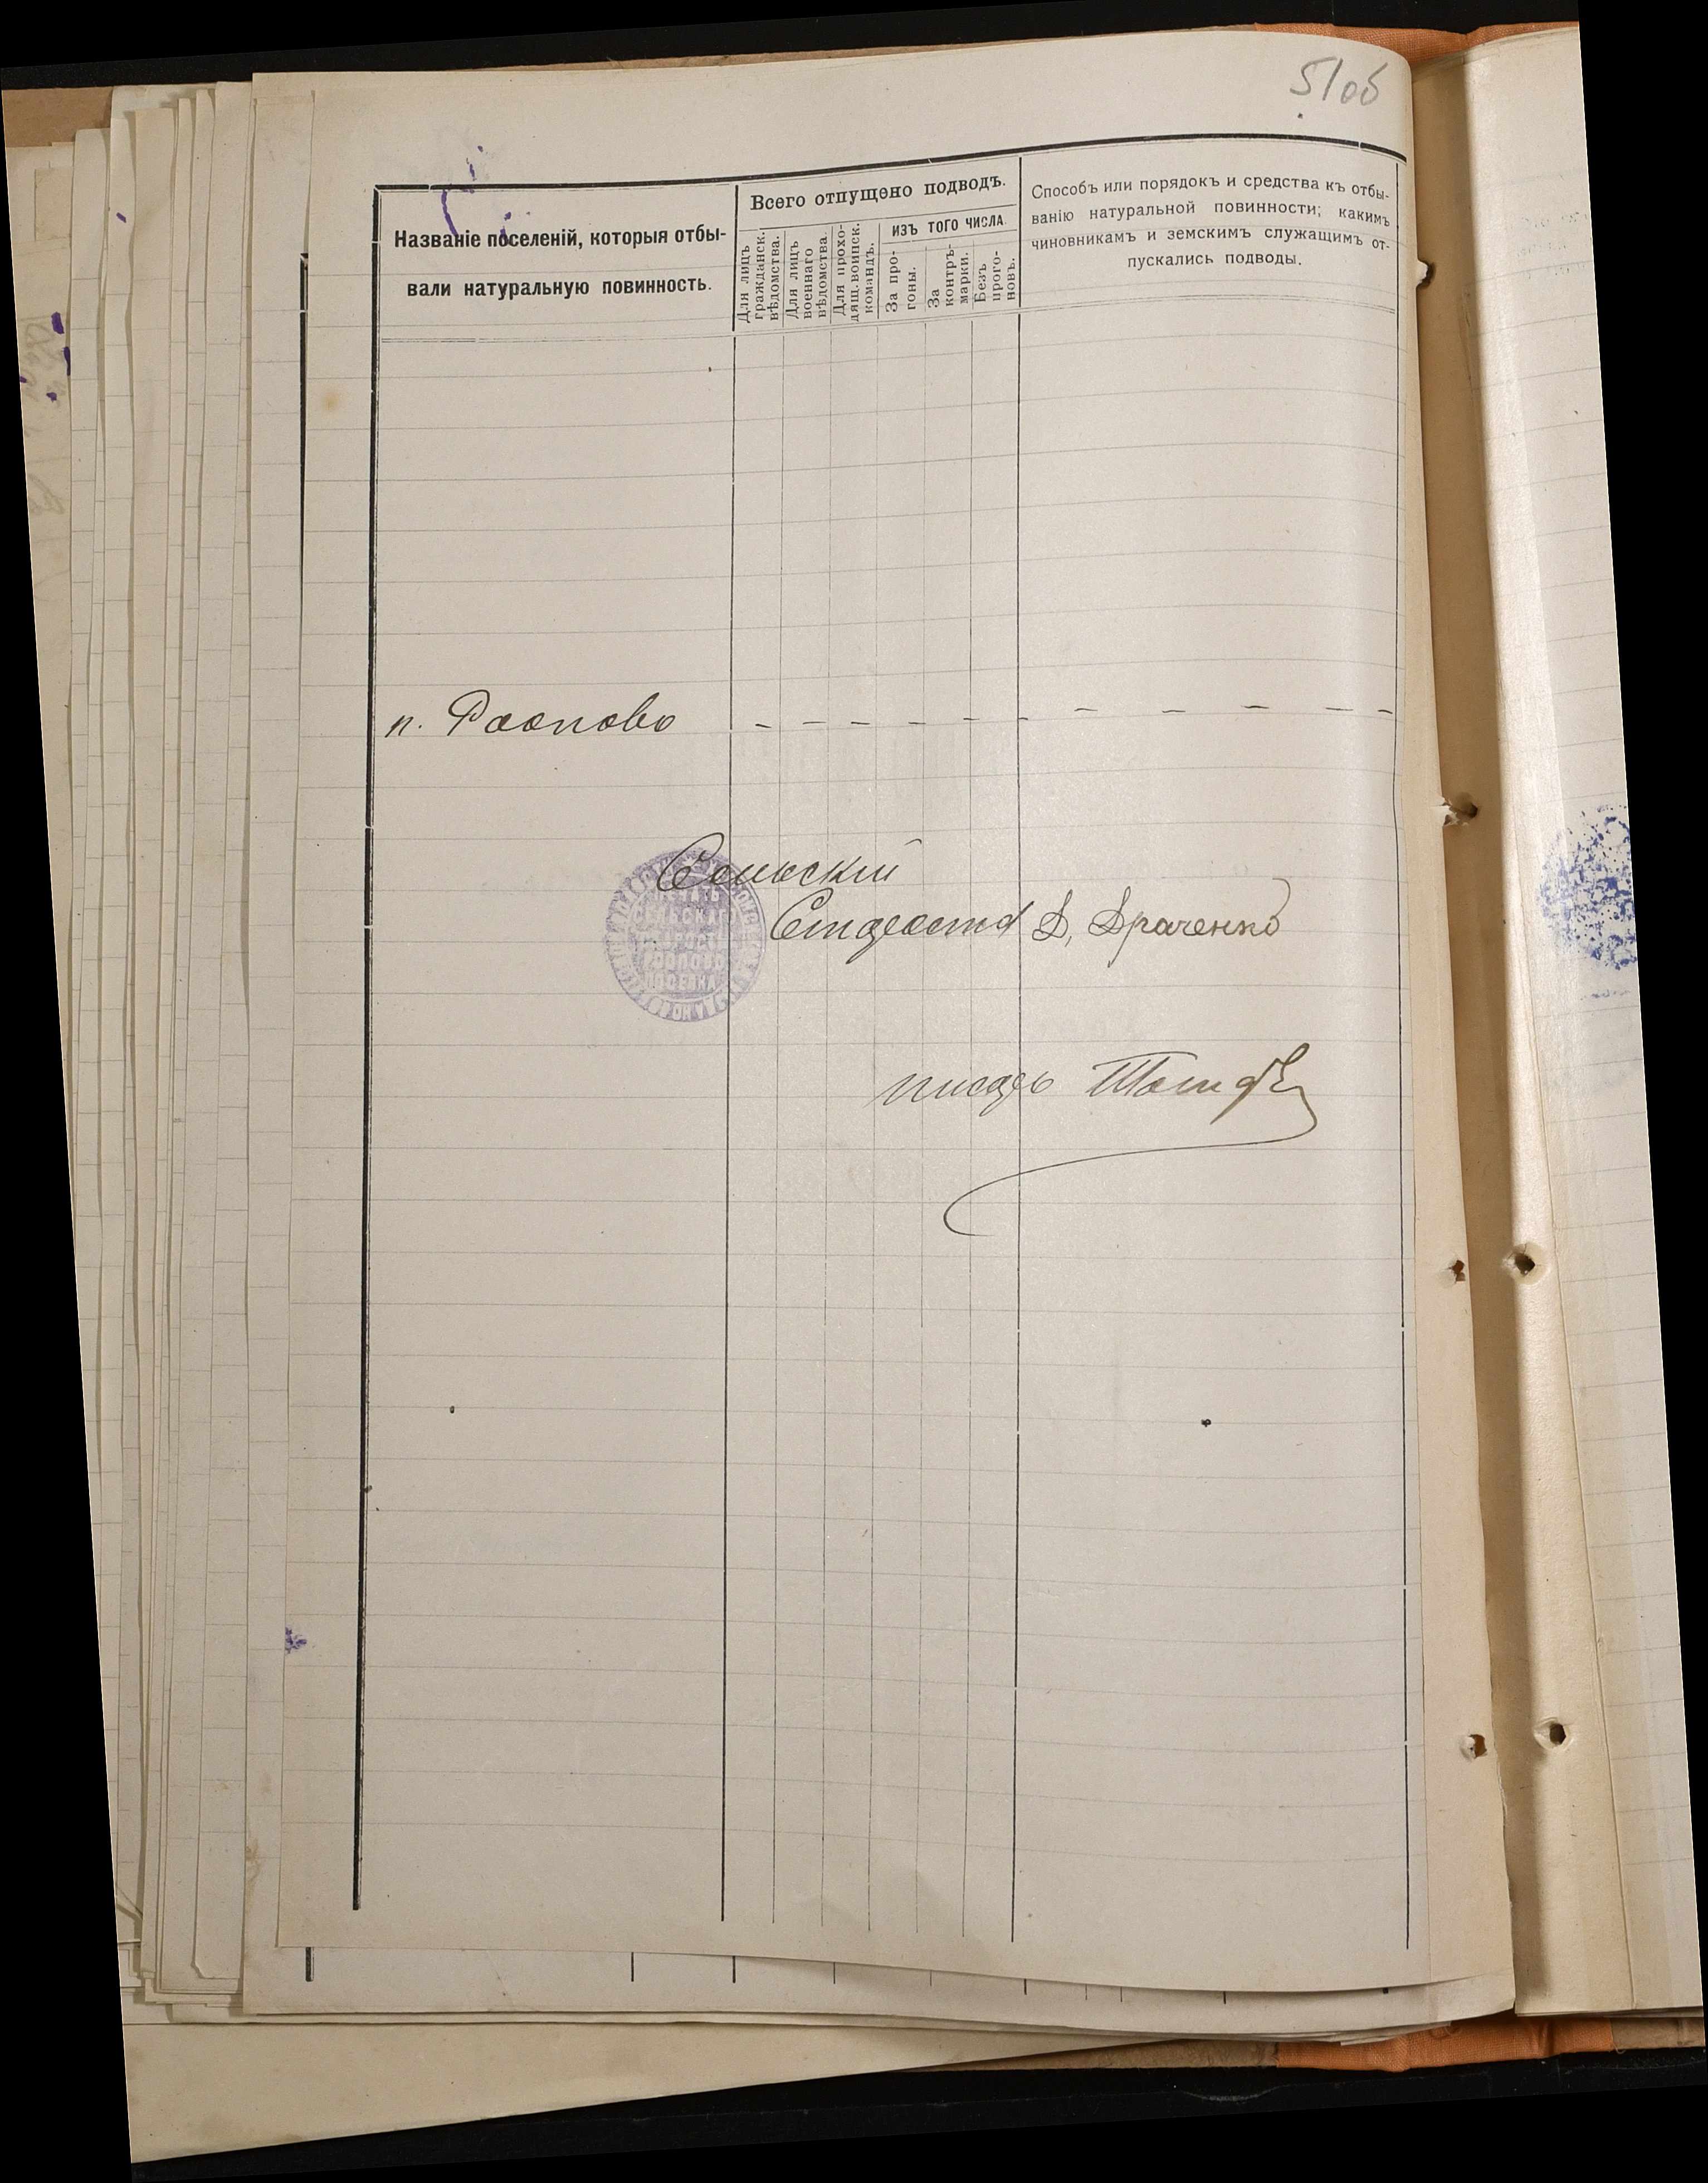 51об
Названіе поселеній, которыя отбы-
вали натуральную повинность.
Всего отпущено подводъ.
Для лицъ
гражданск.
вѣдомства.
Для лицъ
военнаго
вѣдомства.
Для прохо-
дящ. воинск.
командъ.
изъ того числа.
За про-
гоны.
За
контръ-
марки.
Безъ
прого-
новъ.
Способъ или порядокъ и средства къ отбы-
ванію натуральной повинности; какимъ
чиновникамъ и земскимъ служащимъ от-
пускались подводы.
п. Раопово - - - - - - - - - - -
Сельскій
Староста Д. Драченко
писарь
СЕЛЬСКАГО